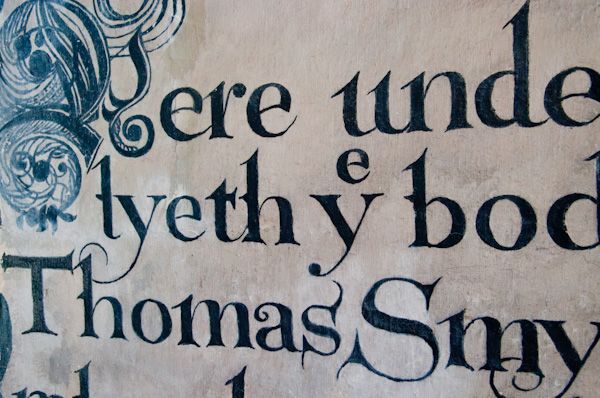 Here unde
lyeth yͤ bod
Thomas Smy